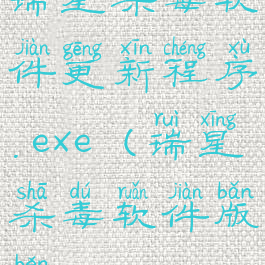 瑞星杀毒软
jiàn gēng xīn chéng xù
件更新程序
ruì xīng
.exe（瑞星
shā dú ruǎn jiàn bǎn
杀毒软件版
běn